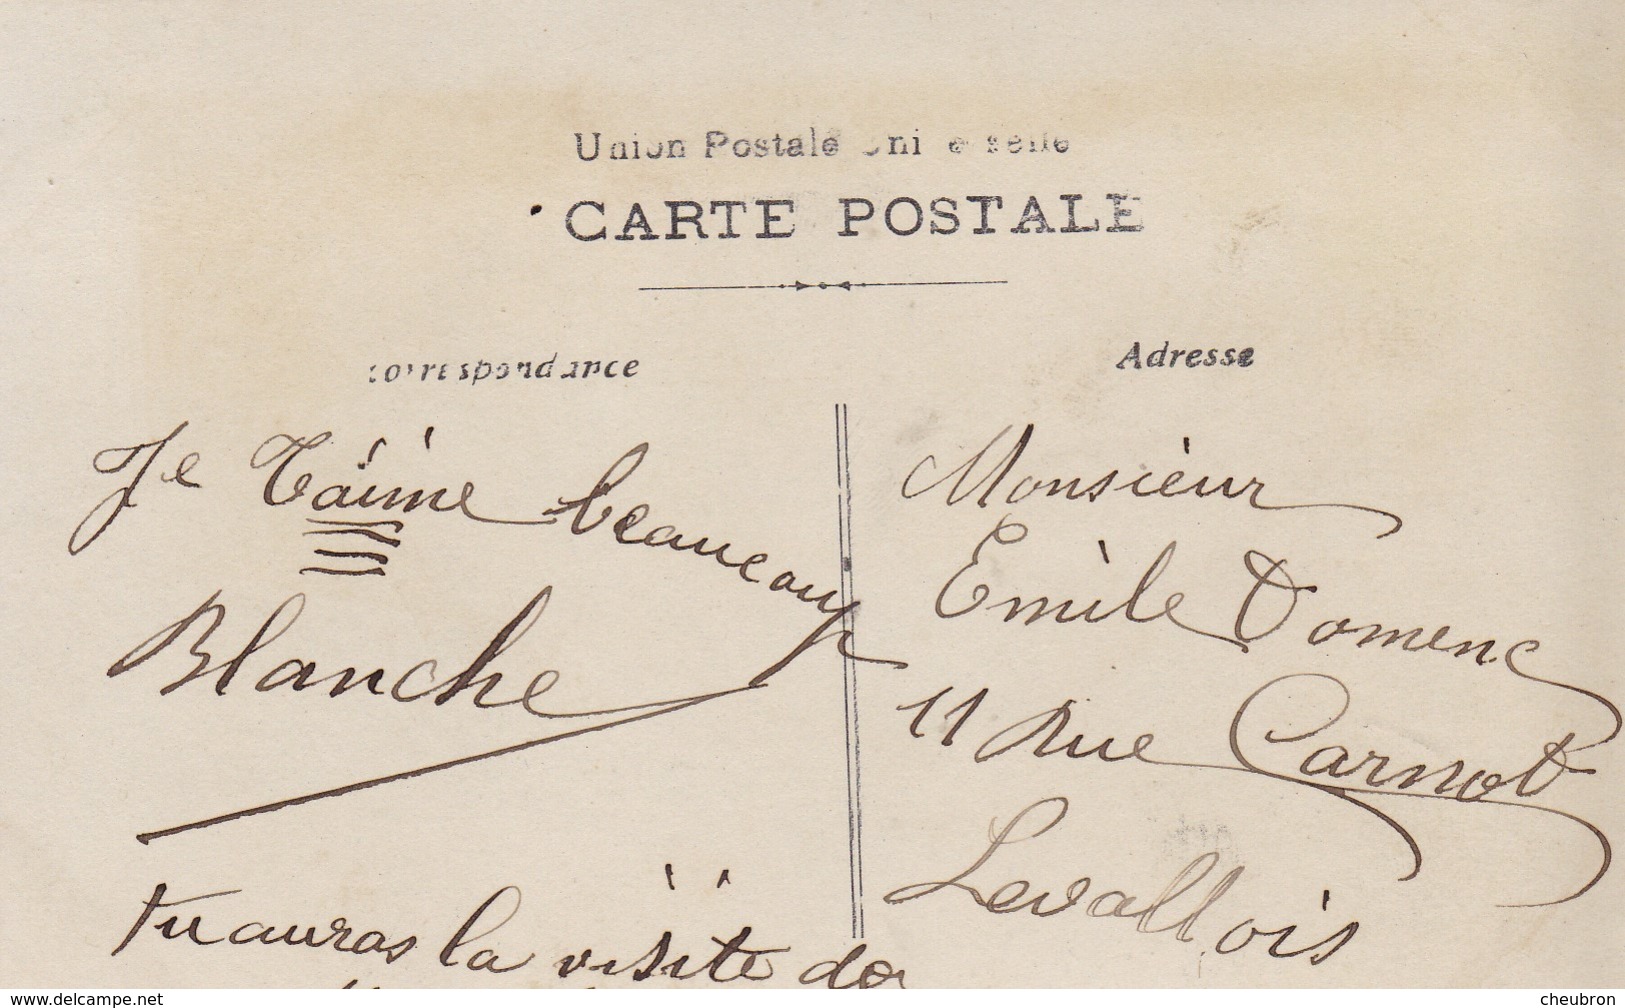 Union Postale Universelle
CARTE POSTALE
Correspondance
Adresse
Je t'aime beaucoup
Blanche
tu auras la visite de
Monsieur
Emile Domenc
11 Rue Carnot
Levallois
www.delcampe.net
cheubron